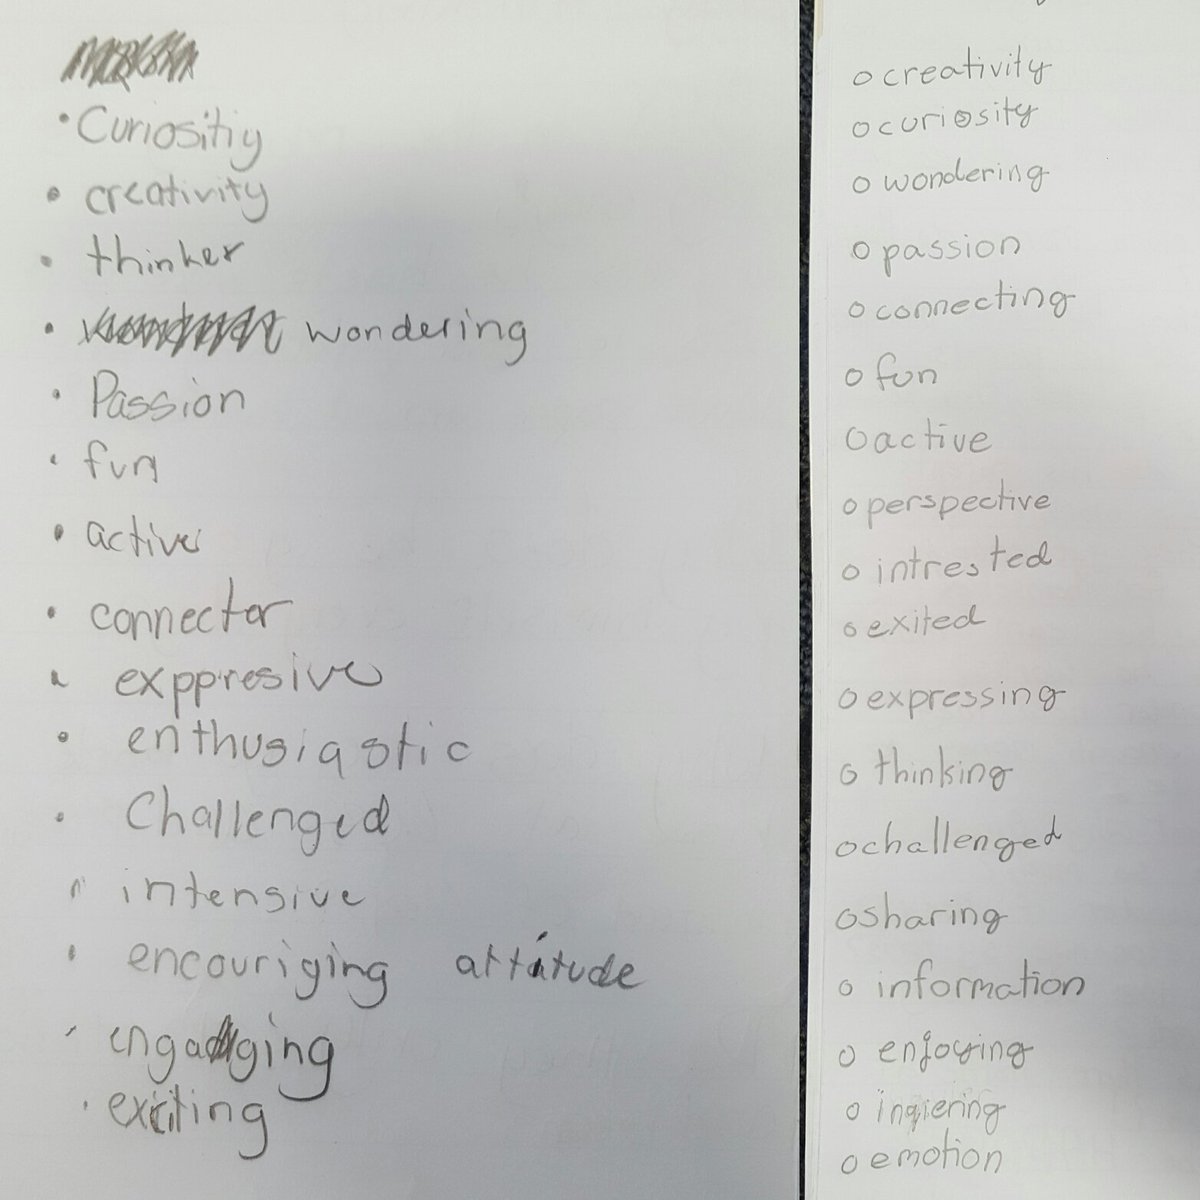 Curiositiy
creativity
thinker
wondering
Passion
fun
active
connector
exppresive
enthusiastic
Challenged
intensive
encouriging attitude
engaging
exiting
creativity
curiosity
wondering
passion
connecting
fun
active
perspective
intrested
exited
expressing
thinking
challenged
sharing
information
enjoying
inqiering
emotion